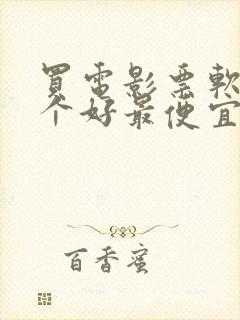 買電影票軟
个好最便宜
百香蜜